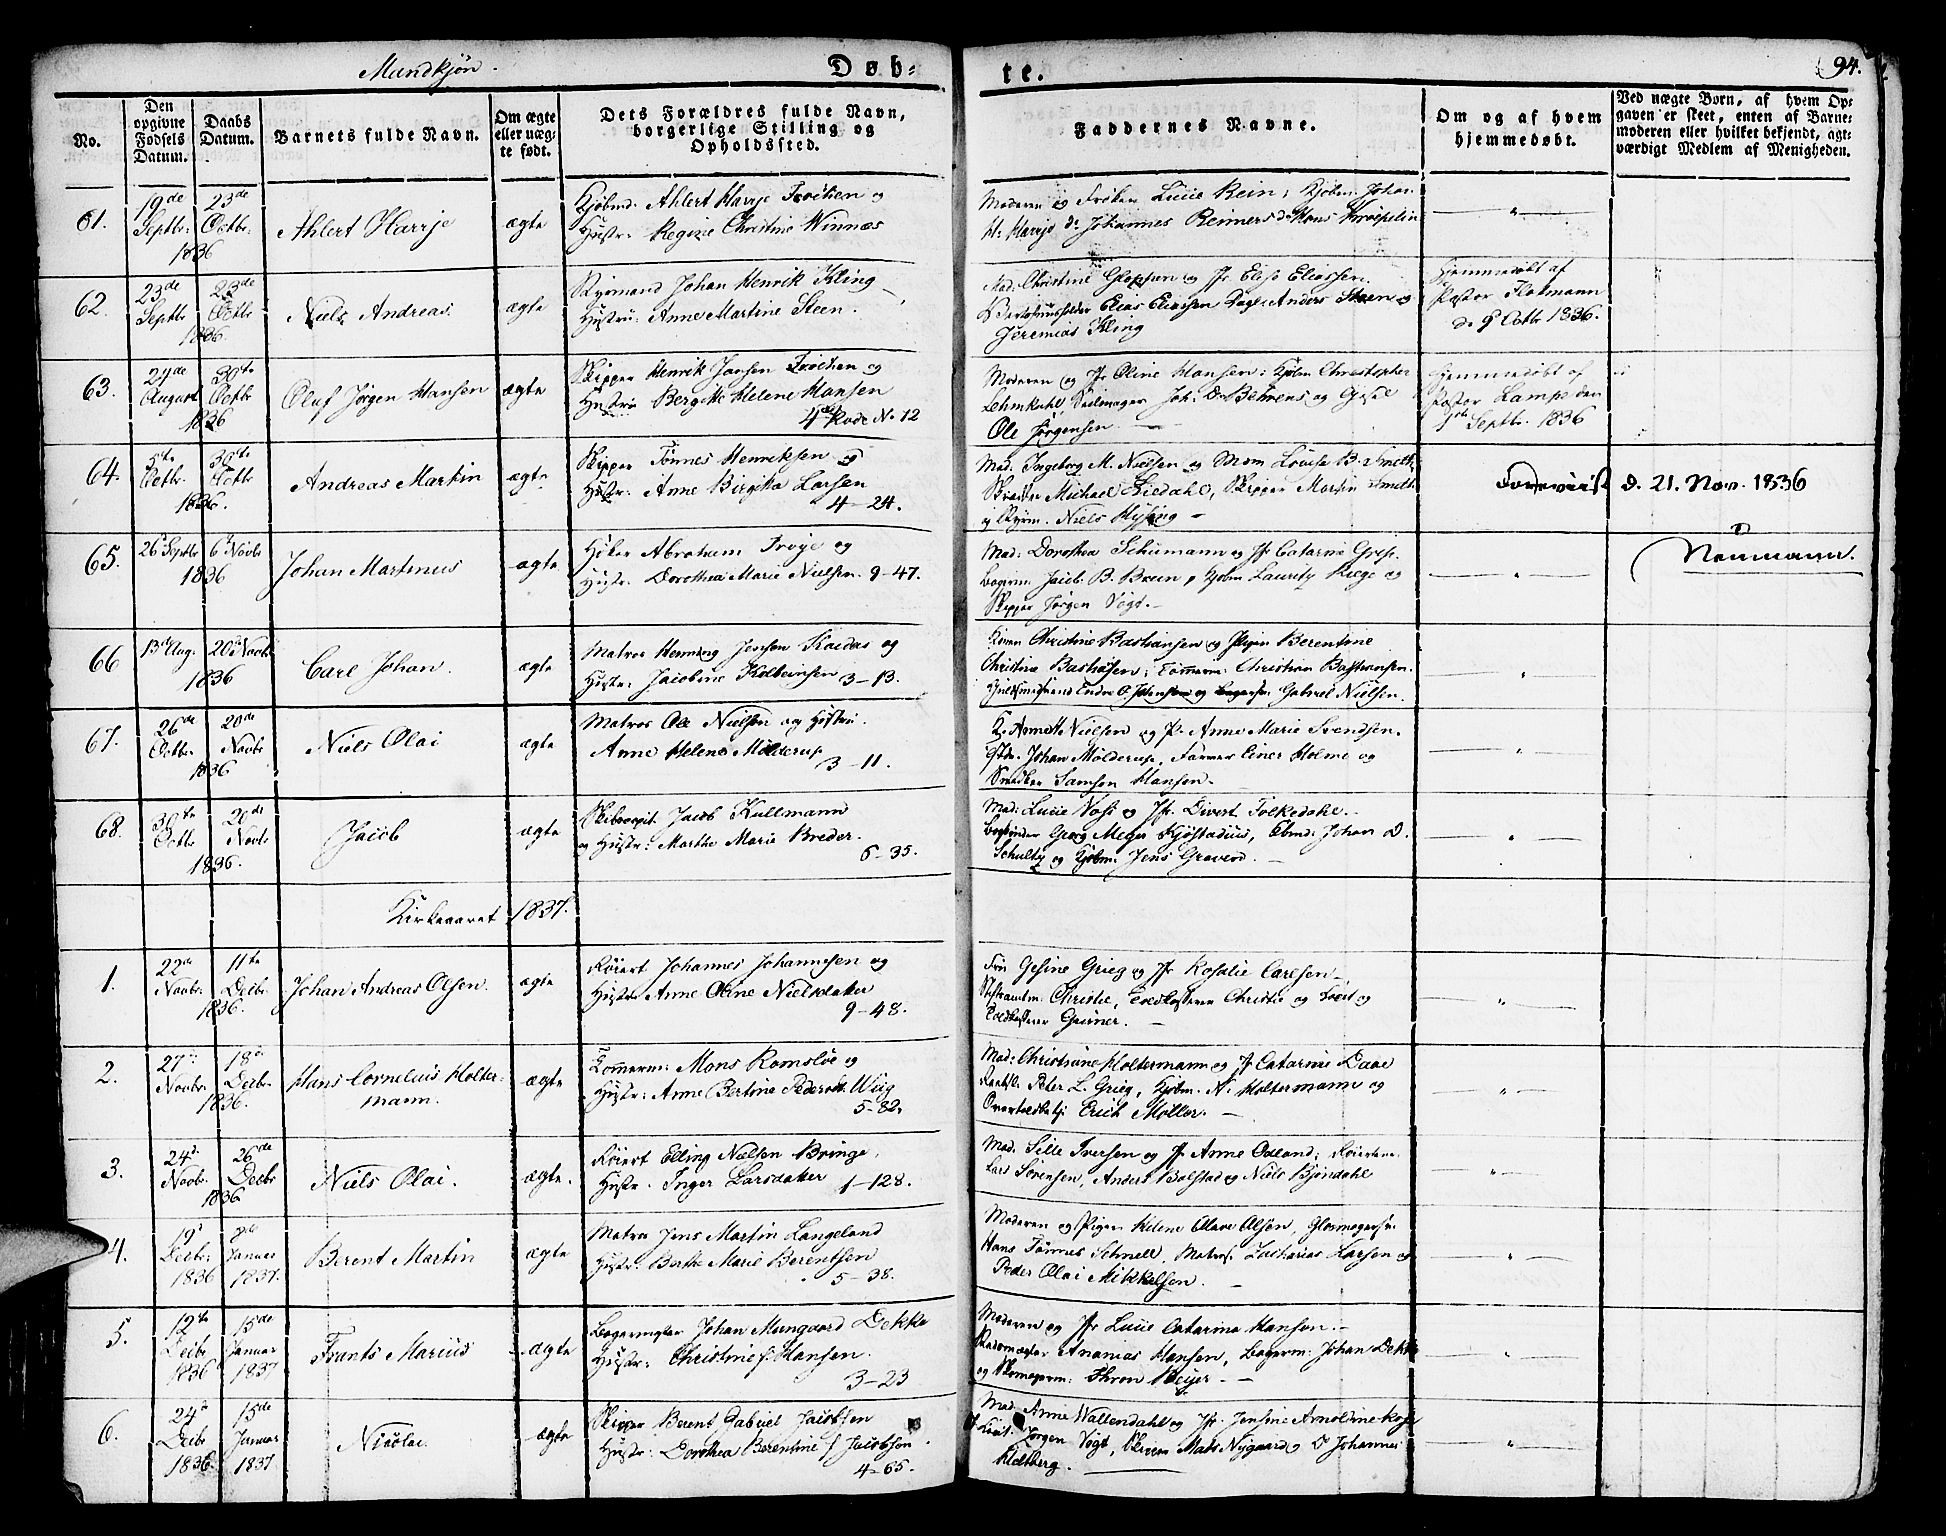 Mandkjøn.
Døb-
te.
94.
No.
Den opgivne Fødsels Datum.
Daabs Datum.
Barnets fulde Navn.
Om ægte eller uægte født.
Dets Forældres fulde Navn, borgerlige Stilling og Opholdssted.
Faddernes Navne.
Om og af hvem hjemmedøbt.
Ved uægte Børn, af hvem Opgaven er skeet, enten af Barnemoderen eller hvilket bekjendt, agtværdigt Medlem af Menigheden.
61.
19de Septbr:
23de Octbr:
1836
Ahlert Harrje
ægte
Kjøbmd: Ahlert Harrje Frøchen og
Hustr: Regine Christine Winnæs
Moderen og Frøken Lucie Rein; Kjøbm: Johan
H: Harrje dº Johannes Reimers dº Hans Krøepelin
62.
23de Septbr
23de Octbr
1836.
Niels Andreas.
ægte
Styrmand Johan Henrik Kling
Hustru: Anne Martine Steen.
Mad. Christine og Jfr Elise Eliassen.
Elias Eliassen Anders Steen og
Jeremias Kling
Hjemmedøbt af
Pastor Flotmann
d. 9 Octbr 1836.
63.
24de August
30te Octbr
1836
Oluf Jørgen Hansen
ægte
Skipper Henrik Jansen Frøchen og
Hustru Bergitte Helene Hansen
4de Rode No 12
Moderen og Jfr Oline Hansen; Kjøbm Christopher
Lehmkuhl, Seilmager Joh: D Behrens og
Ole Jørgensen
Hjemmedøbt af
Pastor Lampe den
1ste Septbr. 1836
64.
5te Octbr.
30te Octbr
1836.
Andreas Martin
ægte
Skipper Tønnes Henriksen og
Hustr: Anne Birgitta Larsen
4-24.
Mad. Ingeborg M. Nielsen og Mom Louise B. Smith
Michael Liedahl, Skipper Martin Smith
og Styrm. Niels
Foreviist d. 21. Nov. 1836
Neumann.
65.
26 Septbr
6 Novbr
1836
Johan Martinus
ægte
Høker Abraham Troye og
Hustr: Dorothea Marie Nielsen. 9-47.
Mad: Dorothea Schumann og Jfr Catarine Greve.
Bagerm: Jacob B. Brun, Kjøbm Lauritz Riege og
Skipper Jørgen Vogt.
66
13 Aug.
20 Novbr
1836
Carl Johan.
ægte
Matros Henning Jensen og
Hustr: Jacobine Kolbeinsen 3-13.
Konen Christine Bastiansen og Pigen Berentine
Christine Bastiansen; Tømmerm: Christian Bastiansen.
Gabriel Nielsen.
67.
26de Octbr.
20de Novbr
1836
Niels Olai
ægte
Matros Ole Nielsen og Hustru.
Anne Helene Mølderup
3-11.
K. Annett Nielsen og P. Anne Marie Svendsen.
Johan Mølderup, Farver Einer Holme og
Snedker Samson Hansen.
68.
30te Octbr
20de Novbr
1836.
Jacob
ægte
Skibscapit Jacob Kullmann
og Hustr: Marthe Marie Breder.
6-35.
Mad: Lucie Voss og Jfr. Sivert Folkedahl.
Bogbinder Georg Meyer Kjøstadius, Kbmd: Johan D.
Schultz og Kjøbm: Jens Gravend.
Kirkeaaret 1837.
1.
22de Novbr.
11te Decbr
1836.
Johan Andreas Olsen.
ægte
Røiert Johannes Johannesen og
Hustr: Anne Oline Nielsdatter
9-48.
Fru Gesine Grieg og Jfr Rosalie Carlsen
Stiftsamtm: Christie, Toldkasserer Christie og
Toldkasserer Gruner.
2.
27de Novbr.
18de Decbr.
1836.
Hans Cornelius Holter-
mann.
ægte
Tømmerm: Mons Romsloe og
Hustr: Anne Bertine Pedersdtt Wiig
5-82.
Mad: Christiane Holtermann og Jf Catarine Daae
Peter L. Grieg, Kjøbm. N. Holtermann og
Overtoldbetj: Erich Møller.
3.
24d. Novbr.
26de Decbr
1836
Niels Olai.
ægte.
Røiert Elling Nielsen Bringe,
Hustr. Inger Larsdatter 1-128.
Mad. Sille Iversen og Jfr Anne Odland; Røierterne
Lars Sørensen, Anders Bolstad og Niels Bjøndahl
4.
19d Decbr: 1836
Januar 1837.
Berent Martin
ægte
Matros Jens Martin Langeland
Hustr: Berthe Marie Berentsen
5-38.
Moderen og Pigen Helene Olave Olsen, Glasmagersv:
Hans Tønnes Schnell, Matros. Zacharias Larsen og
Peder Olai Mikkelsen.
5.
12te Decbr 1836
15de Januar 1837
Frants Marius
ægte
Bagermester Johan Mungaard Dekke
Hustr: Christine f: Hansen.
3-23
Moderen og Jfr Lucie Catarina Hansen.
Ananias Hansen, Bagerm: Johan Dekke
og Skomagerm: Thron Beyer
6.
24d Decbr 1836.
15de Januar 1837
Nicolai.
ægte
Skipper Berent Gabriel Jacobsen
Hustr: Dorothea Berentine f Jacobsen.
4-65.
Mad. Anne Wallendahl og Jfr. Jensine Arnoldine
Jørgen Vogt, Skipper Mads Nygaard og D Johannes
Kletberg.